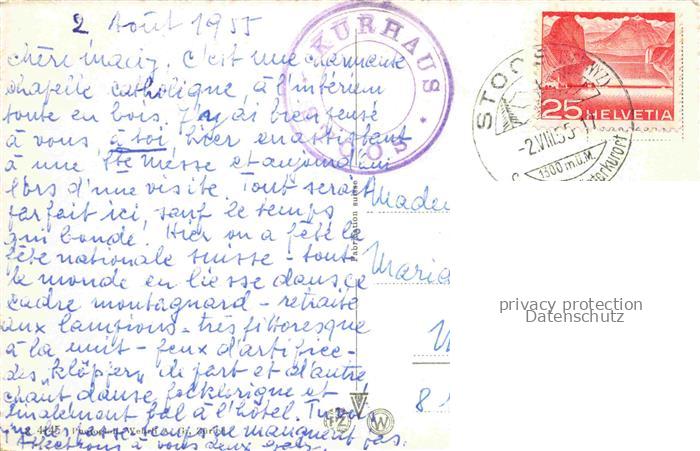 2 Août 1955
chère Marcy. C'est une charmante
chapelle catholique, à l'intérieur
toute en bois. J'y ai bien pensé
à vous, à toi, hier en assistant
à une Ste Messe et aujourd'hui
lors d'une visite. Tout serait
parfait ici, sauf le temps
qui boude. Hier on a fêté la
fête nationale suisse - tout
le monde en liesse dans ce
cadre montagnard - retraite
aux lampions - très pittoresque
à la nuit - feux d'artifice -
des „Klöpfer" de part et d'autre
chant, danse folklorique et
finalement bal à l'hôtel. Tu vois
passe-temps ne manquent pas.
Affectueux à vous deux
KURHAUS
STOOS
STOOS
-2.VIII.55-17
1300 m.ü.M.
25 HELVETIA
Fabrication suisse
Madem
Maria
8
4145
privacy protection
Datenschutz